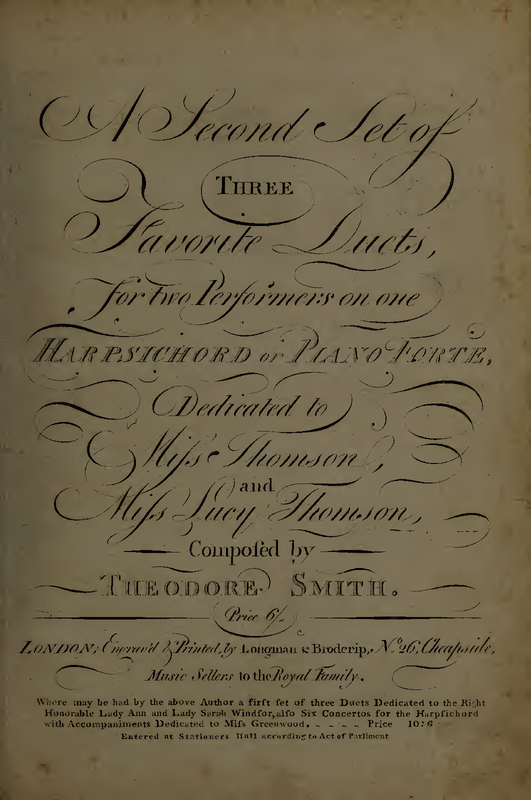 4
A Second Set of
THREE
Favorite Duets,
for two Performers on one
HARPSICHORD or PIANO FORTE,
Dedicated to
Miſs Thomson,
and
Miſs Lucy Thomson,
Compoſed by
THEODORE SMITH.
Price 6/.
LONDON; Engrav'd & Printed, by Longman & Broderip, No. 26, Cheapside,
Music Sellers to the Royal Family.
Where may be had by the above Author a firſt ſet of three Duets Dedicated to the Right
Honorable Lady Ann and Lady Sarah Windſor, alſo Six Concertos for the Harpſichord
with Accompaniments Dedicated to Miſs Greenwood. _ _ _ _ _ Price 10:6
Entered at Stationers Hall according to Act of Parliment